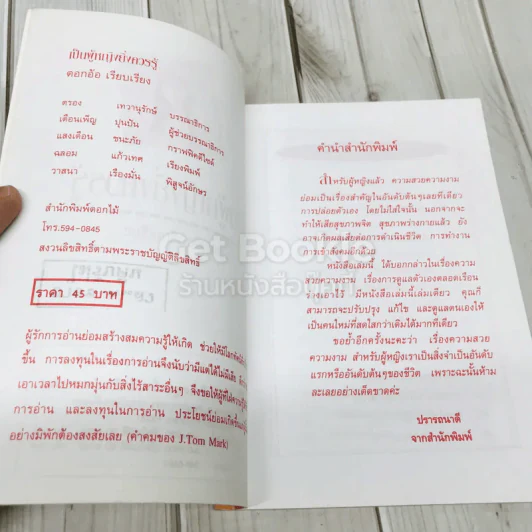 เป็นผู้หญิงควรรู้
ดอกอ้อ เรียบเรียง
ตรอง เทวานุรักษ์ บรรณาธิการ
เดือนเพ็ญ ปุนปัน ผู้ช่วยบรรณาธิการ
แสงเดือน ชนะภัย กราฟฟิคดีไซด์
ฉลอม แก้วเทศ เรียงพิมพ์
วาสนา เรืองมั่น พิสูจน์อักษร
สำนักพิมพ์ดอกไม้
โทร.594-0845
สงวนลิขสิทธิ์ตามพระราชบัญญัติลิขสิทธิ์
ราคา 45 บาท
ผู้รักการอ่านย่อมสร้างสมความรู้ให้เกิด ช่วยให้มีโลกทัศน์
ขึ้น การลงทุนในเรื่องการอ่านจึงนับว่ามีแต่ได้ไม่มีเสีย
เอาเวลาไปหมกมุ่นกับสิ่งไร้สาระอื่นๆ จึงขอให้ผู้ที่ใฝ่ความรู้
การอ่าน และลงทุนในการอ่าน ประโยชน์ย่อมเกิดขึ้น
อย่างมิพักต้องสงสัยเลย (คำคมของ J.Tom Mark)
คำนำสำนักพิมพ์
สำหรับผู้หญิงแล้ว ความสวยความงาม
ย่อมเป็นเรื่องสำคัญในอันดับต้นๆเลยทีเดียว
การปล่อยตัวเอง โดยไม่ใส่ใจนั้น นอกจากจะ
ทำให้เสียสุขภาพจิต สุขภาพร่างกายแล้ว ยัง
อาจเกิดผลเสียต่อการดำเนินชีวิต การทำงาน
การเข้าสังคมอีกด้วย
หนังสือเล่มนี้ ได้บอกกล่าวในเรื่องความ
สวยความงาม เรื่องการดูแลตัวเองตลอดเรือน
ร่างเอาไว้ มีหนังสือเล่มนี้เล่มเดียว คุณก็
สามารถจะปรับปรุง แก้ไข และดูแลตนเองให้
เป็นคนใหม่ที่สดใสกว่าเดิมได้มากทีเดียว
ขอย้ำอีกครั้งนะคะว่า เรื่องความสวย
ความงาม สำหรับผู้หญิงเราเป็นสิ่งจำเป็นอันดับ
แรกหรืออันดับต้นๆของชีวิต เพราะฉะนั้นห้าม
ละเลยอย่างเด็ดขาดค่ะ
ปรารถนาดี
จากสำนักพิมพ์
Get Books
ร้านหนังสือ